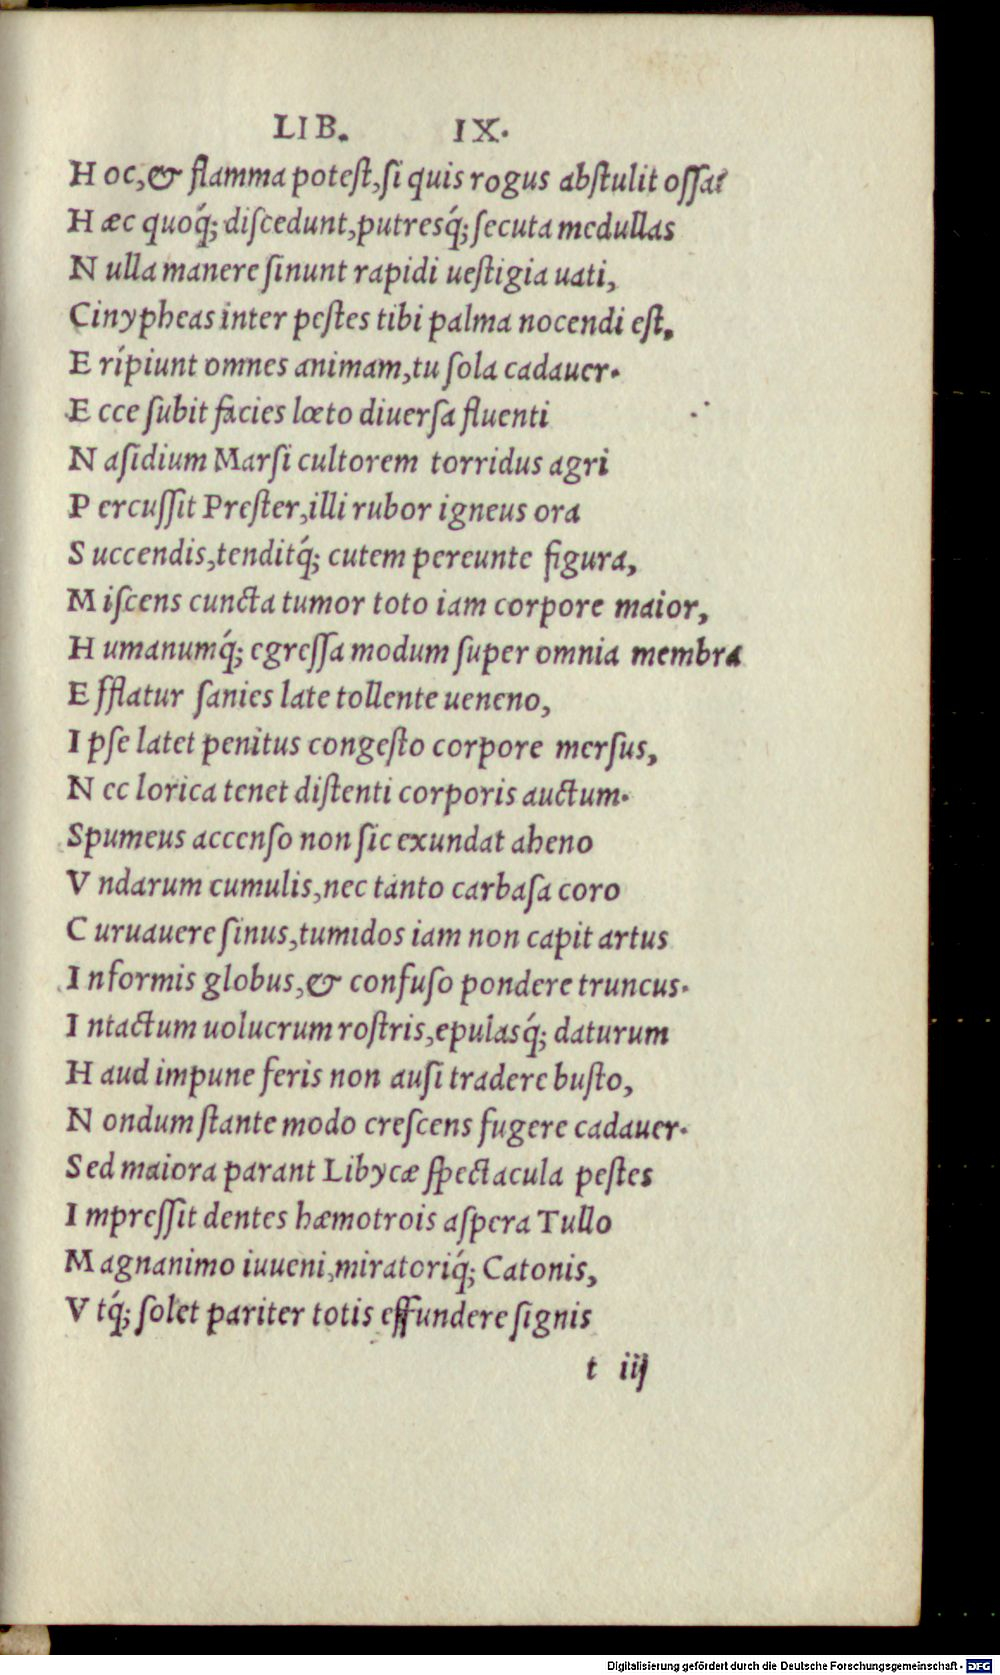 LIB. IX.
H oc,& flamma potest,si quis rogus abstulit ossa?
H æc quoq́; discedunt,putresq́; secuta medullas
N ulla manere sinunt rapidi uestigia uati,
Cinypheas inter pestes tibi palma nocendi est.
E ripiunt omnes animam,tu sola cadauer.
E cce subit facies lœto diuersa fluenti
N asidium Marsi cultorem torridus agri
P ercussit Prester,illi rubor igneus ora
S uccendis,tenditq́; cutem pereunte figura,
M iscens cuncta tumor toto iam corpore maior,
H umanumq́; egressa modum super omnia membra
E fflatur sanies late tollente ueneno,
I pse latet penitus congesto corpore mersus,
N ec lorica tenet distenti corporis auctum.
Spumeus accenso non sic exundat aheno
V ndarum cumulis,nec tanto carbasa coro
C uruauere sinus,tumidos iam non capit artus
I nformis globus,& confuso pondere truncus.
I ntactum uolucrum rostris,epulasq́; daturum
H aud impune feris non ausi tradere busto,
N ondum stante modo crescens fugere cadauer.
Sed maiora parant Libycæ spectacula pestes
I mpressit dentes hæmotrois aspera Tullo
M agnanimo iuueni,miratoriq́; Catonis,
V tq́; solet pariter totis effundere signis
t iij
Digitalisierung gefördert durch die Deutsche Forschungsgemeinschaft - DFG